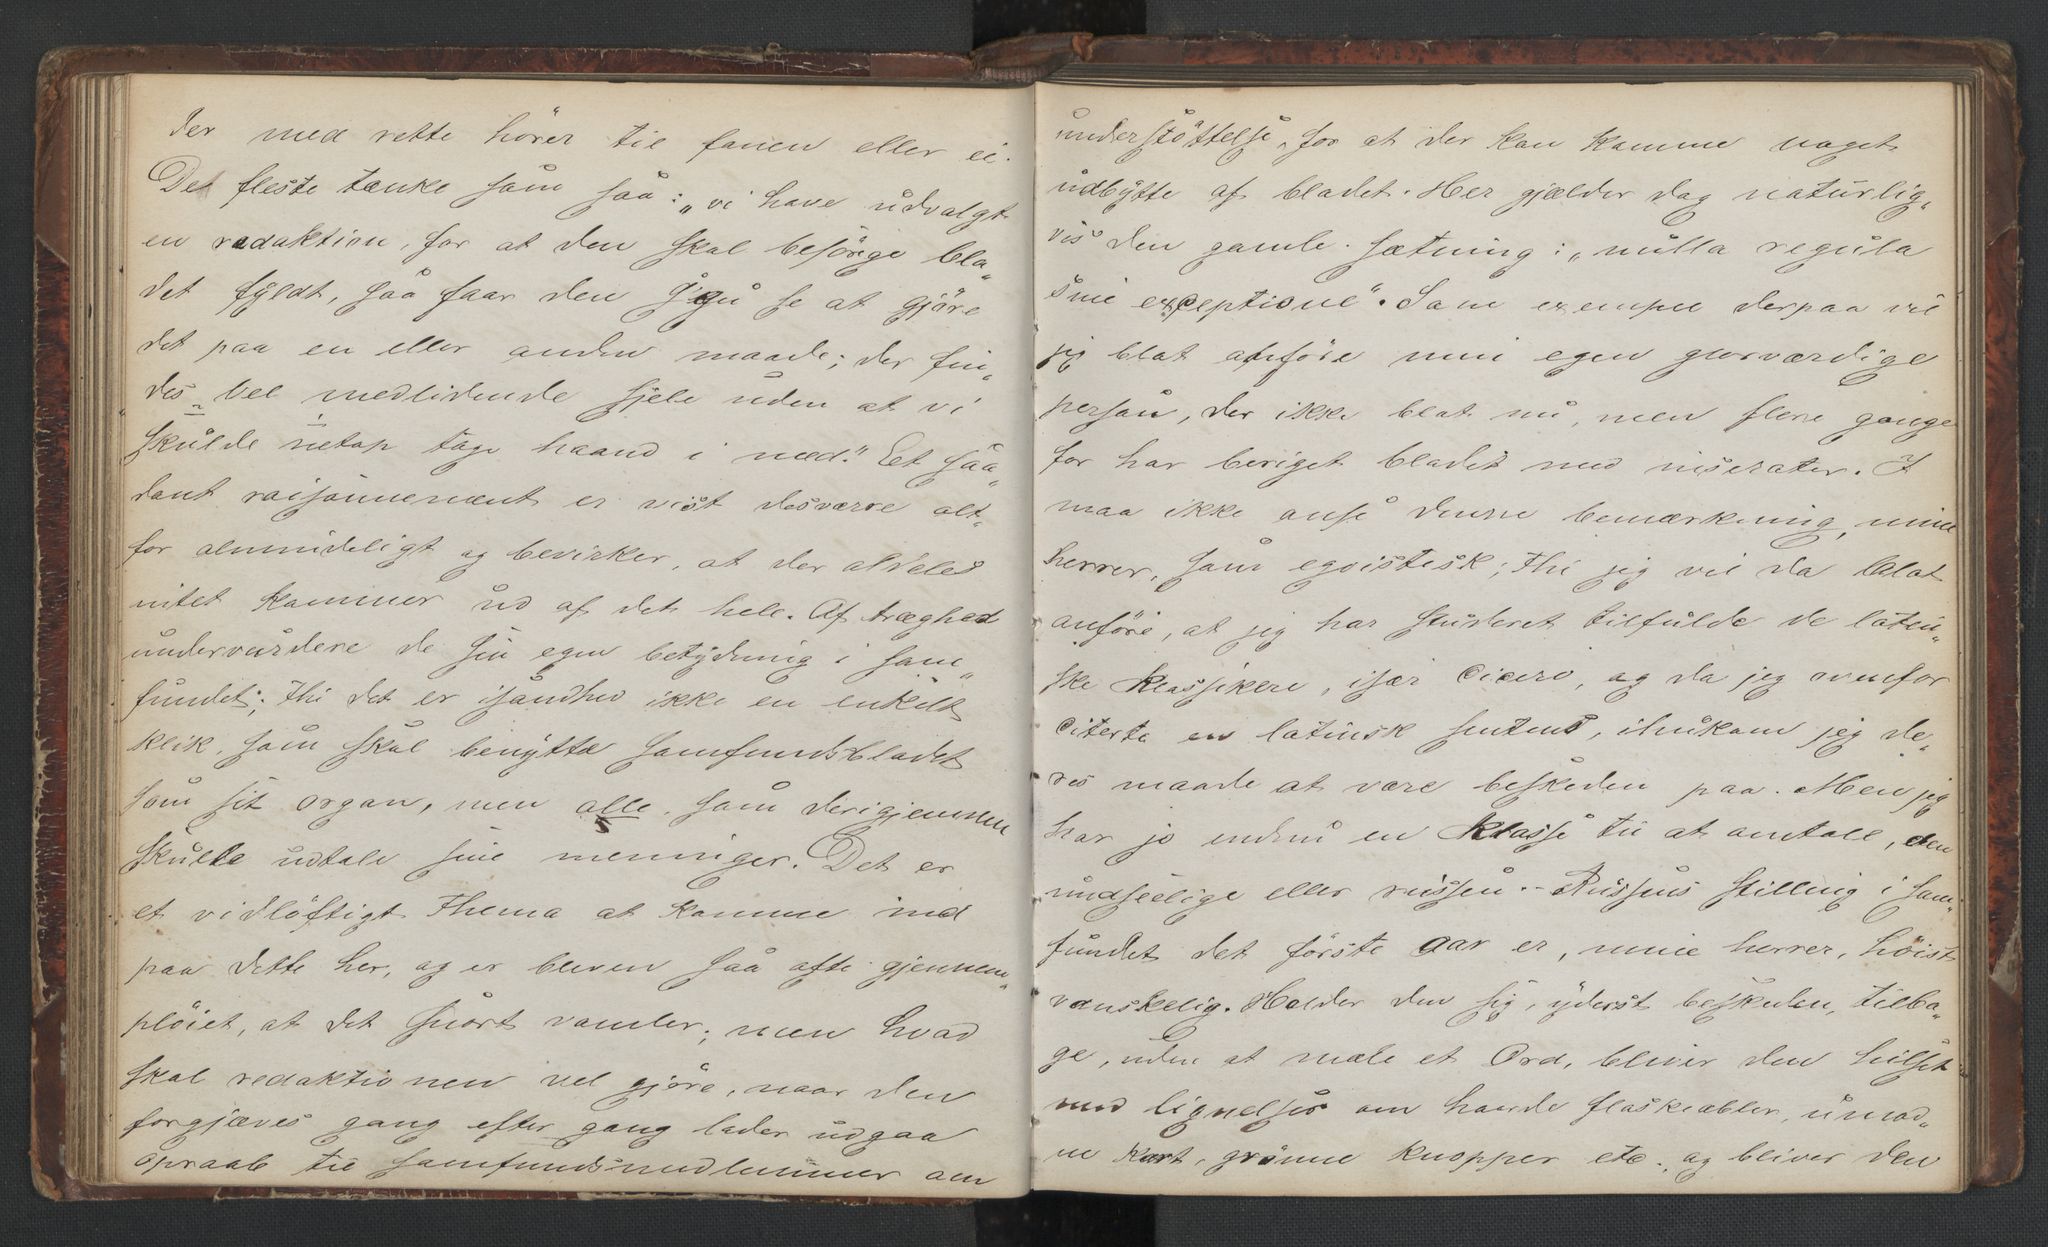 der med rette hører til fanen eller ei.
De fleste tænke som saa: „vi have udvalgt
en redaktion, for at den skal besørge bla„
det fyldt, saa faar den se at gjøre
det paa en eller anden maade; der fin„
des vel medlidende sjele uden at vi
skulde netop tage haand i med." Et saa„
dant raisonnement er vist desværre alt„
for almindeligt og bevirker, at der aldeles
intet kommer ud af det hele. Af træghed
undervurdere de sin egen betydning i sam„
fundet; thi det er isandhed ikke en enkelt
klik, som skal benytte samfundsbladet
som sit organ, men alle, som derigjennem
skulle udtale sine meninger. Det er
et vidløftigt Thema at komme ind
paa dette her, og er bleven saa ofte gjennem„
pløiet, at det snart vamler; men hvad
skal redaktionen vel gjøre, naar den
forgjæves gang efter gang lader udgaa
opraab til samfundsmedlemmer om
understøttelse, for at der kan komme noget
udbytte af bladet. Her gjælder dog naturlig„
vis den gamle sætning: „nulla regula
sine exceptione". Som exempel derpaa vil
jeg blot anføre min egen glorværdige
person, der ikke blot nu, men flere gange
før har beriget bladet med inserater. I
maa ikke anse denne bemærkning, mine
herrer, som egoistisk; thi jeg vil da blot
anføre, at jeg har studeret tilfulde de latin„
ske klassikere, især Cicero, og da jeg ovenfor
citerte en latinsk sentens, ihukom jeg de„
res maade at være beskeden paa. Men jeg
har jo endnu en klasse til at omtale, den
undseelige eller russen. – Russens stilling i sam„
fundet det første aar er, mine herrer, høist
vanskelig. Holder den sig, yderst beskeden, tilba„
ge, uden at mæle et Ord, bliver den hilset
med lignelser om haarde flaskeæbler, umod„
ne kart, grønne knopper etc., og bliver den